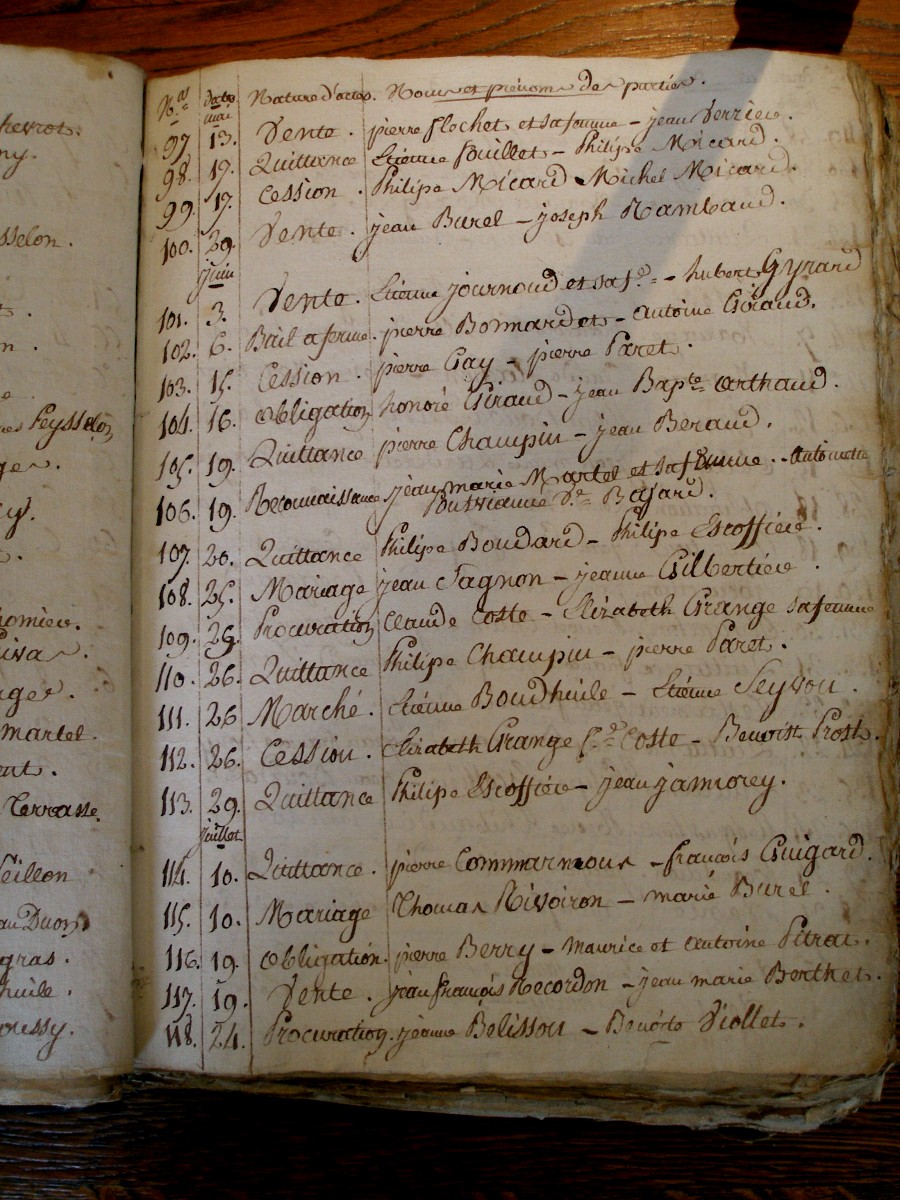 hevrot.
ny.
sselon.
n.
Peysselon
ger.
y.
homier.
Rivar.
nger.
martel.
ent.
Terrasse.
Teillon
au Duon
gras.
huile.
oussy.
N.os dates Nature d'actes. Noms et prénoms des parties.
mai
97. 13. Vente. pierre flochet et sa femme – jean Verrier.
98. 17. Quittance Etienne Fouillet – Philipe Micard.
99. 17. Cession. Philipe Micard – Michel Micard.
100. 29. Vente. jean Burel – joseph Rambaud.
juin
101. 3. Vente. Etienne journoud et sa f.e – hubert Gyrard
102. 6. Bail a ferme. pierre Bonnardet – antoine Giraud.
103. 15. Cession. pierre Gay – pierre Paret.
104. 16. obligation honoré Giraud – jean Bapte arthaud.
105. 19. Quittance pierre Champin – jean Beraud.
106. 19. Reconnaissance jean marie Martel et sa femme – antoinette
V.e Bajard.
107. 20. Quittance Philipe Boudard – Philipe Escoffier.
108. 25. Mariage jean Fagnon – jeanne Gilbertier.
109. 25. Procuration Claude Coste – Elizabeth Grange sa femme
110. 26. Quittance Philipe Champin – pierre Paret.
111. 26 Marché. Etienne Boudhuile – Etienne Seyvou.
112. 26. Cession. Elizabeth Grange f.e Coste – Benoist Prost.
113. 29. Quittance Philipe Escoffier – jean jamorey.
juillet
114. 10. Quittance. pierre Commarmour – françois Guigard.
115. 10. Mariage Thomas Rivoiron – marie Burel.
116. 19. obligation. pierre Berry – maurice et antoine Pitrat.
117. 19. Vente. jean françois Recordon – jean marie Berthet.
118. 24. Procuration. jeanne Belissou – Viollet.